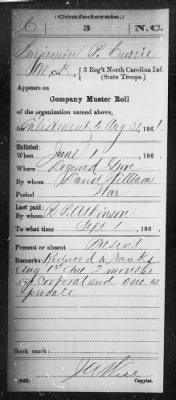 (Confederate.)
C 3 N.C.
Benjamin P. Currie
Pvt., Co. K, 3 Reg't North Carolina Inf.
(State Troops.)
Appears on
Company Muster Roll
of the organization named above,
for Enlistment to Aug 31, 1861.
Enlisted:
When June 1, 186
Where
By whom David Williams
Period War
Last paid:
By whom R. P. Atkinson
To what time Sept 1, 186
Present or absent Present
Remarks: Reduced to ranks
Aug 1st due 2 months
as Corporal and one as
private
Book mark:
(642) Copyist.